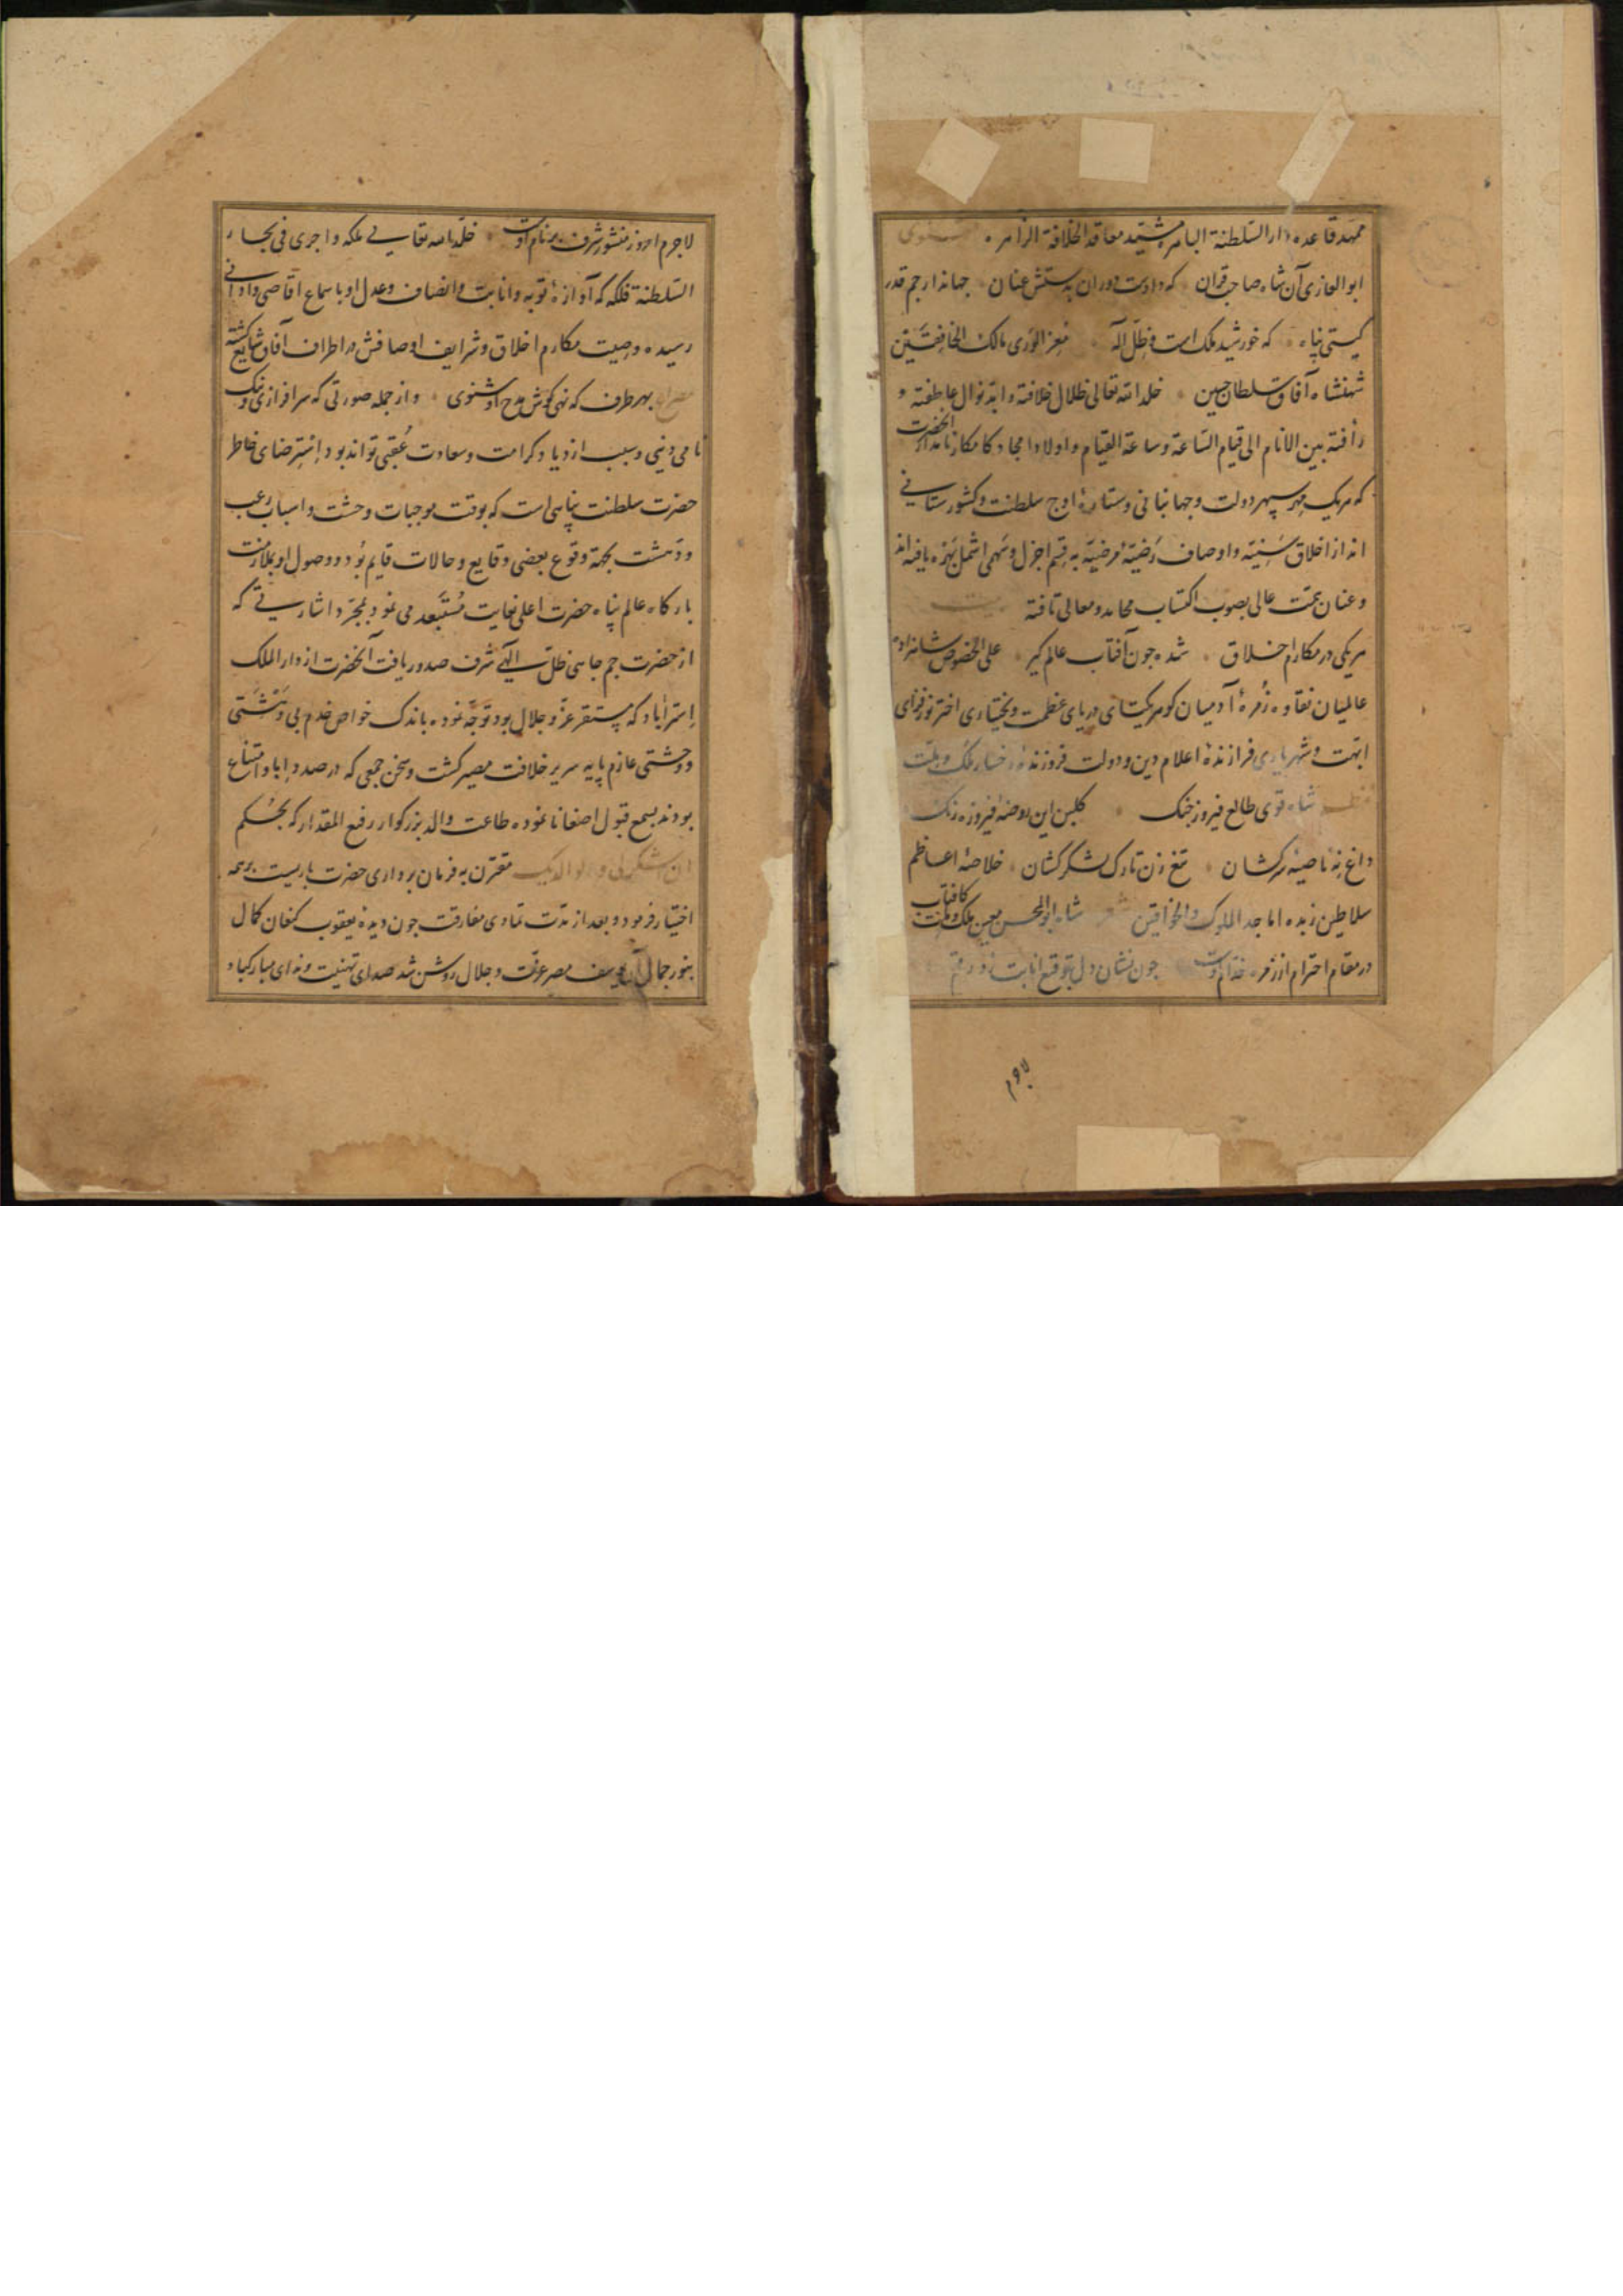 ممهد قاعده دار السلطنة الباهره مشید معاقد الخلافة الزاهره مثنوی
ابو الغازی آن شاه صاحب قران که دادست دوران بدستش عنان جهاندار جم قدر
کیتی پناه که خورشید ملک است و ظل اله معز الوری مالک الخافقین
شهنشاه آفاق سلطان حسین خلد الله تعالی ظلال خلافته و ابد نوال عاطفته و
رأفته بین الانام الی قیام الساعة و ساعة القیام و اولاد امجاد کامکار نامدار آنحضرت
که هریک مهر سپهر دولت و جهانبانی و ستارهٔ اوج سلطنت و کشورستانی
اند از اخلاق سنیّه و اوصاف رضیّهٔ مرضیّه به قسم اجزل و سهمی اشمل بهره یافته اند
و عنان همت عالی بصوب اکتساب محامد و معالی تافته بیت
هریکی در مکارم اخلاق شده چون آفتاب عالم کیر علی الخصوص شاهزادهٔ
عالمیان نقاوه زُمرهٔ آدمیان کوهر یکتای دریای عظمت و بختیاری اختر نورفزای
ابهت و شهریاری فرازندهٔ اعلام دین و دولت فروزندهٔ رخسار ملک و ملت
شاه قوی طالع فیروز جنک کلبن این روضهٔ فیروزه رنک
داغ نهِ ناصیهٔ سرکشان تیغ زن تارک لشکرکشان خلاصهٔ اعاظم
سلاطین زبده اماجد الملوک والخواقین شعر شاه ابو المحسن معین ملک و ملت کافتاب
در مقام احترام از زمره خدام اوست چون نشان دل بتوقیع انابت زد رقم
لاجرم امروز منشور شرف بر نام اوست خلد الله تعالی ملکه و اجری فی بحار
السلطنة فلکه که آوازهٔ توبه و انابت و انصاف و عدل او باسماع اقاصی و ادانی
رسیده و صیت مکارم اخلاق و شرایف اوصافش در اطراف آفاق شایع کشته
مصراع بهر طرف که نهی کوش مدح او شنوی و از جمله صورتی که سرافرازی و نیک
نامی دنیی و سبب ازدیاد کرامت و سعادت عُقبی تواند بود اِسترضای خاطر
حضرت سلطنت پناهی است که بوقت موجبات وحشت و اسباب رعب
و دهشت بجهة وقوع بعضی وقایع و حالات قایم بُود و وصول او بملازمت
بارکاه عالم پناه حضرت اعلی بغایت مُستَبعد می نمود بمجرّد اشارتی که
از حضرت جم جاهی ظلّ الهی شرف صدور یافت آنحضرت از دار الملک
اِستراباد که مستقر عزّ و جلال بود توجّه نموده باندک خواص خدم بی دهشتی
و وحشتی عازم پایه سریر خلافت مصیر کشت و سخن جمعی که در صدد اِبا و امتناع
بودند بسمع قبول اصغا نانموده طاعت والد بزرکوار رفیع المقدار که بحُکم
ان اشکرلی و لوالدیک مقترن به فرمان برداری حضرت باریست بر همه
اختیار فرمود و بعد از مدّت تمادی مفارقت چون دیدهٔ یعقوب کنعان کمال
بنور جمال آن یوسف مصر عزّت و جلال روشن شد صدای تهنیت و ندای مبارکباد